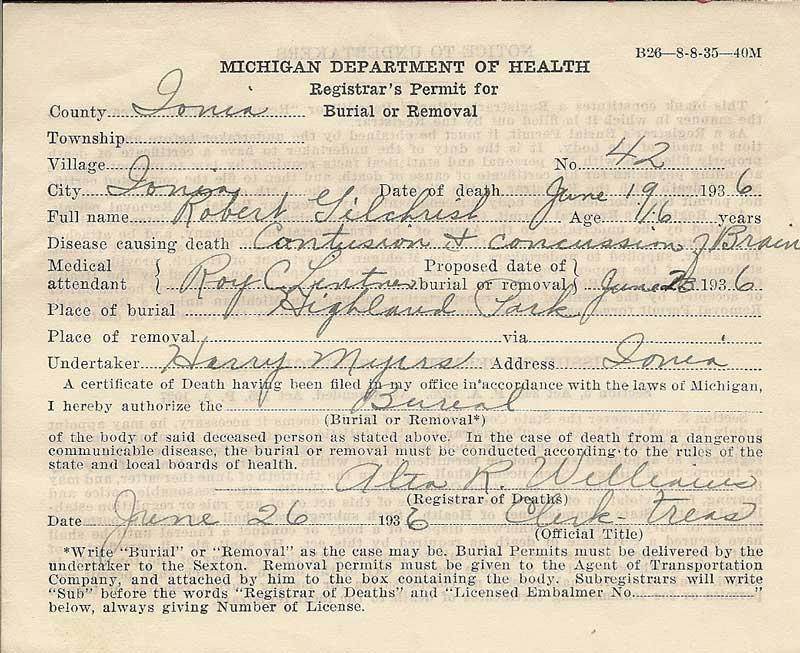 B26—8-8-35—40M
MICHIGAN DEPARTMENT OF HEALTH
Registrar's Permit for
Burial or Removal
County Ionia
Township
Village No. 42
City Ionia Date of death June 19 1936
Full name Robert Gilchrist Age 16 years
Disease causing death Contusion & concussion of Brain
Medical attendant } Roy C. Lintner Proposed date of burial or removal } June 1936
Place of burial Highland Park
Place of removal via
Undertaker Harry Myers Address Ionia
A certificate of Death having been filed in my office in accordance with the laws of Michigan,
I hereby authorize the Burial
(Burial or Removal*)
of the body of said deceased person as stated above. In the case of death from a dangerous
communicable disease, the burial or removal must be conducted according to the rules of the
state and local boards of health.
Alta R. Williams
(Registrar of Deaths)
Date June 26 1936 Clerk-Treas
(Official Title)
*Write "Burial" or "Removal" as the case may be. Burial Permits must be delivered by the
undertaker to the Sexton. Removal permits must be given to the Agent of Transportation
Company, and attached by him to the box containing the body. Subregistrars will write
"Sub" before the words "Registrar of Deaths" and "Licensed Embalmer No. "
below, always giving Number of License.